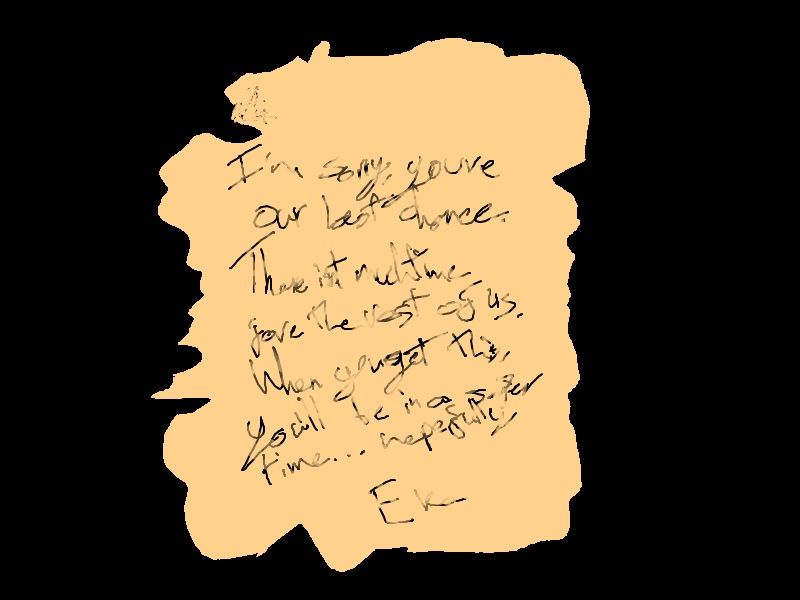 I'm sorry, you're
our best chance.
There isn't much time
for the rest of us.
When you get this,
You will be in a safer
time... hopefully
Eka